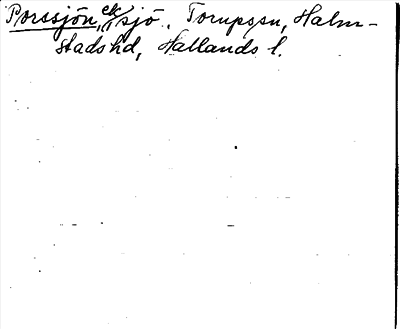 Porssjön, sjö. Torup sn, Halm-
stads hd, Hallands l.